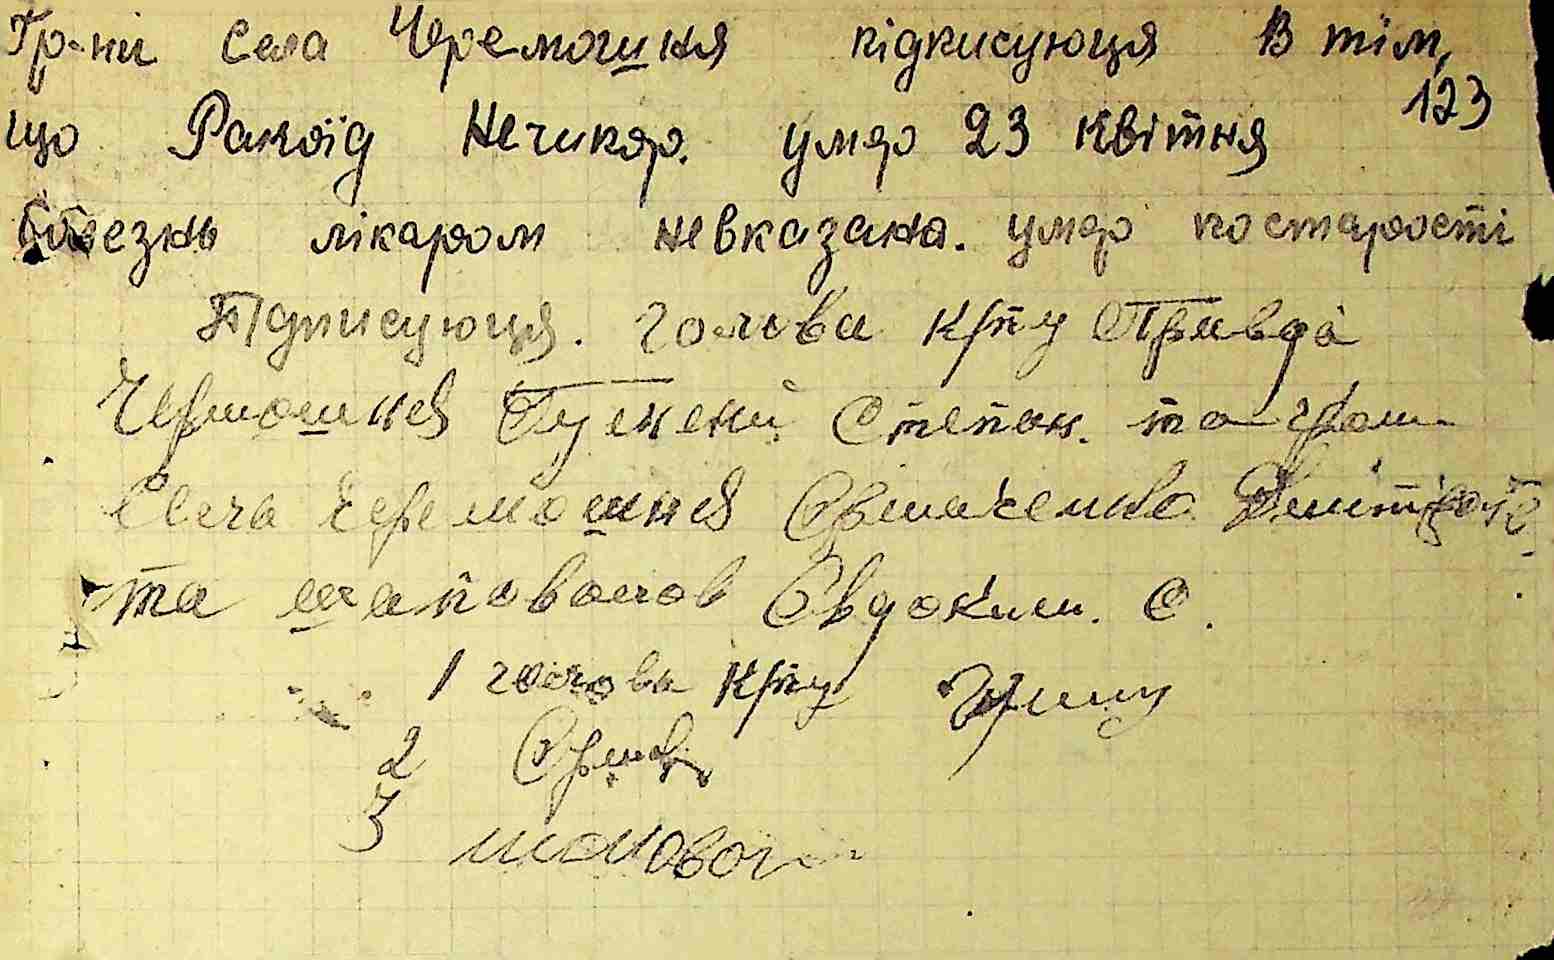 Гр-ни села Черемошня підписуюця В тім,
123
що Ракоїд Нечипор. умер 23 квітня
болезнь лікаром невказана. умер постарості
Підписуюця. голова кпу Правда
Чермошня Степан. та гром
Села Черемошня
та шаповалов Євдоким. С.
1 голова кпу
2
3 шаповал